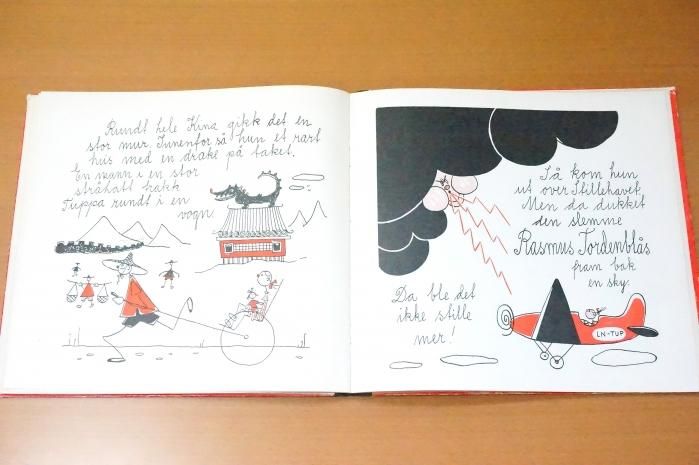 Rundt hele Kina gikk det en
stor mur. Innenfor så hun et rart
hus med en drake på taket.
En mann i en stor
stråhatt trakk
Tuppa rundt i en
vogn.
Så kom hun
ut over Stillehavet.
Men da dukket
den slemme
Rasmus Tordenblås
fram bak
en sky.
Da ble det
ikke stille
mer!
LN-TUP